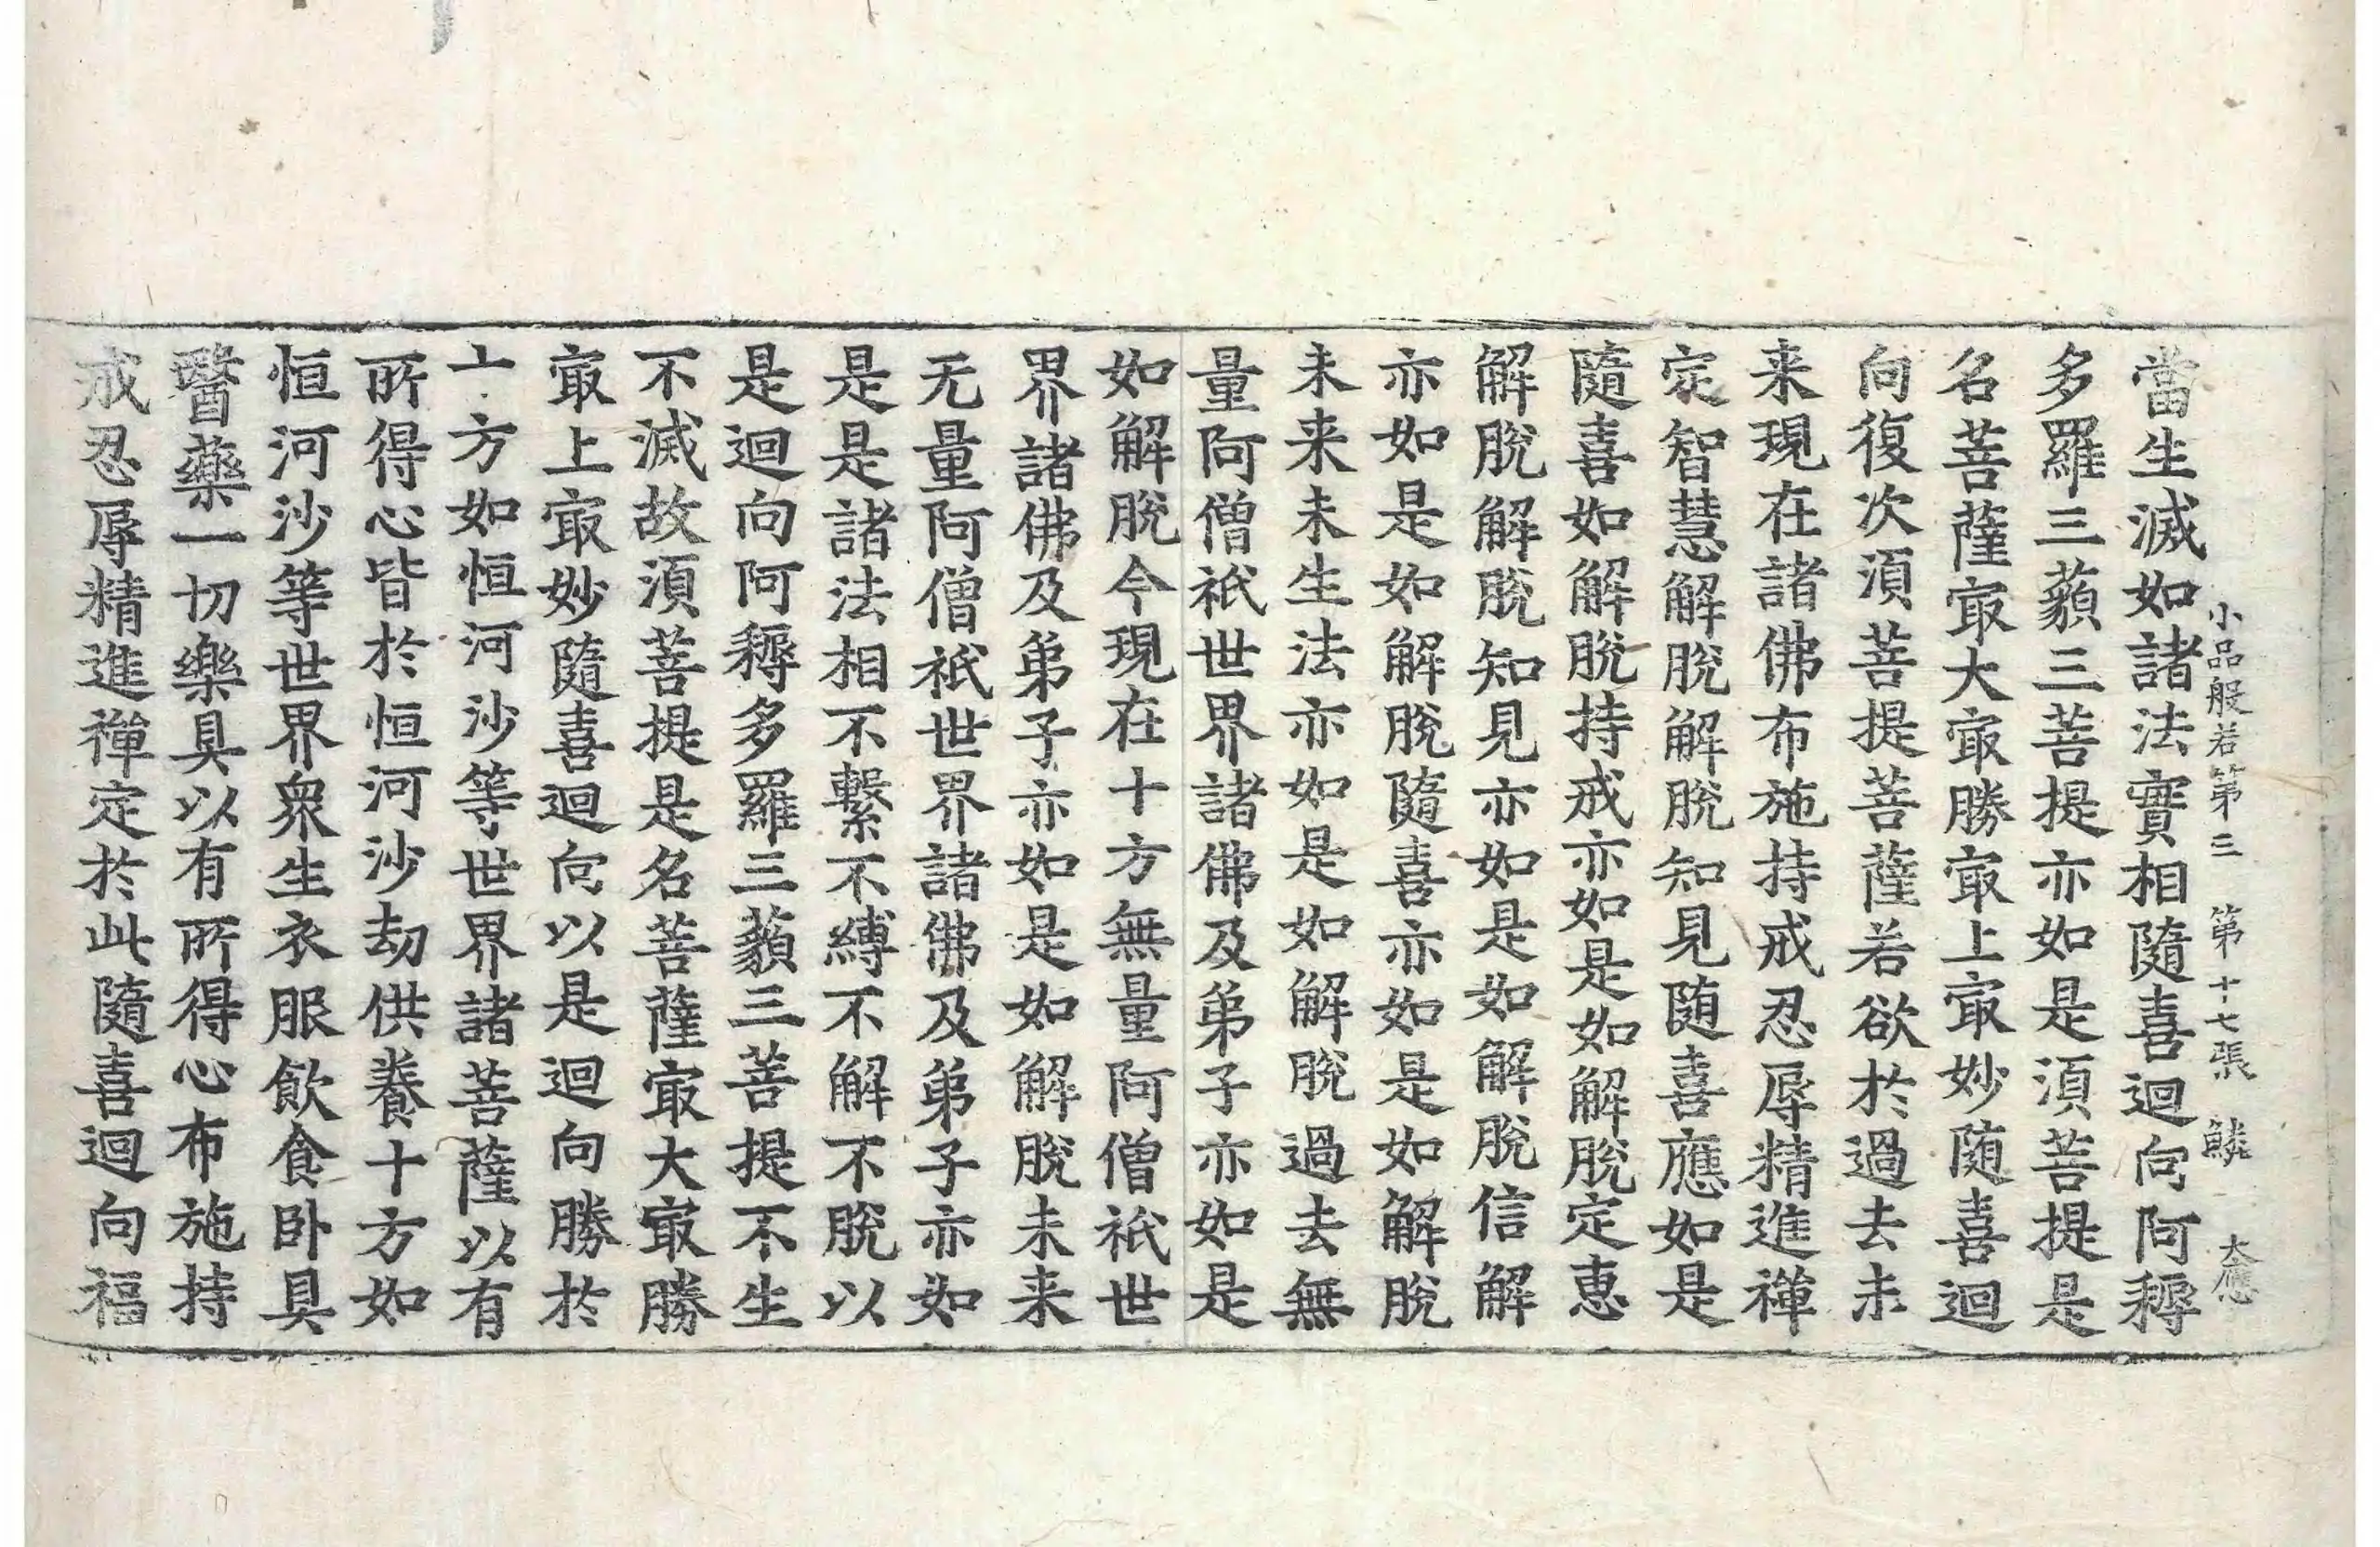 小品般若第三　第十七張　鱗　大應
當生滅如諸法實相隨喜迴向阿耨
多羅三藐三菩提亦如是須菩提是
名菩薩㝡大㝡勝㝡上㝡妙随喜迴
向復次須菩提菩薩若欲於過去未
来現在諸佛布施持戒忍辱精進禪
㝎智慧解脫解脫知見随喜應如是
隨喜如解脫持戒亦如是如解脫定恵
解脫解脫知見亦如是如解脫信解
亦如是如解脫隨喜亦如是如解脫
未来未生法亦如是如解脫過去無
量阿僧祇世界諸佛及弟子亦如是
如解脫今現在十方無量阿僧祇世
界諸佛及弟子亦如是如解脫未来
无量阿僧祇世界諸佛及弟子亦如
是是諸法相不繫不縛不解不脫以
是迴向阿耨多羅三藐三菩提不生
不滅故須菩提是名菩薩㝡大㝡勝
㝡上㝡妙隨喜迴向以是迴向勝於
十方如恒河沙等世界諸菩薩以有
所得心皆於恒河沙劫供養十方如
恒河沙等世界衆生衣服飲食卧具
醫藥一切樂具以有所得心布施持
戒忍辱精進禪定於此隨喜迴向福